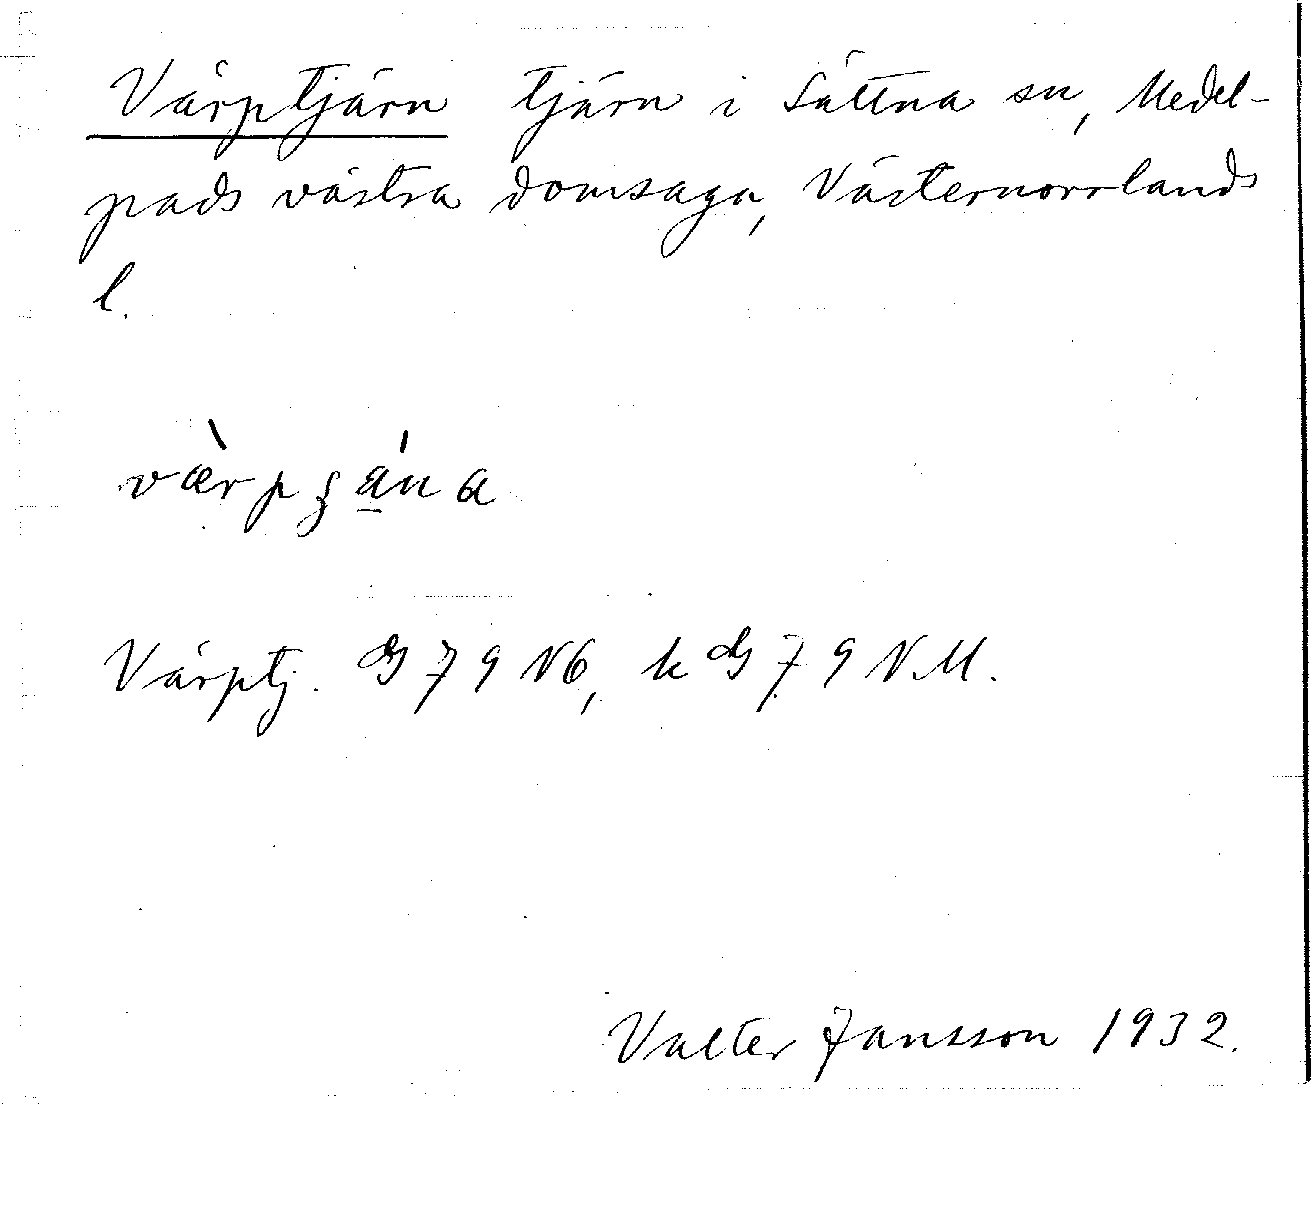 Värptjärn tjärn i Sättna sn, Medel-
pads västra domsaga, Västernorrlands
l.
Värptj. GS 79 NÖ, k GS 79 N.M.
Valter Jansson 1932.